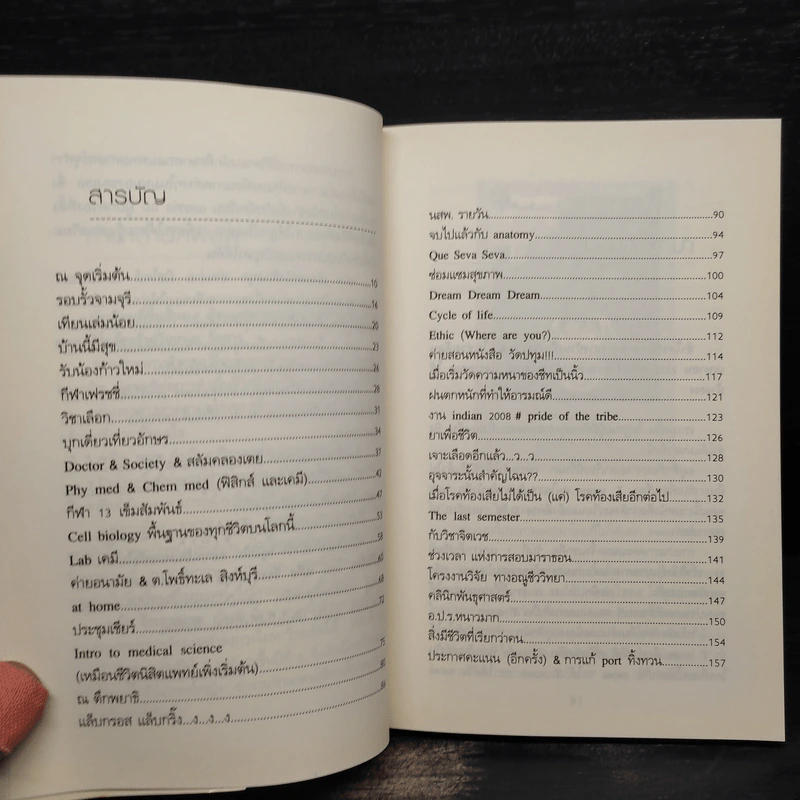 สารบัญ
ณ จุดเริ่มต้น..........10
รอบรั้วจามจุรี..........16
เทียนเล่มน้อย..........20
บ้านนี้มีสุข..........23
รับน้องก้าวใหม่..........26
กีฬาเฟรชชี่..........28
วิชาเลือก..........31
บุกเดี่ยวเที่ยวอักษร..........34
Doctor & Society & สลัมคลองเตย..........37
Phy med & Chem med (ฟิสิกส์ และเคมี)..........42
กีฬา 13 เข็มสัมพันธ์..........47
Cell biology พื้นฐานของทุกชีวิตบนโลกนี้..........53
Lab เคมี..........58
ค่ายอนามัย & ต.โพธิ์ทะเล สิงห์บุรี..........60
at home..........68
ประชุมเชียร์..........72
Intro to medical science
(เหมือนชีวิตนิสิตแพทย์เพิ่งเริ่มต้น)..........75
ณ ตึกพยาธิ..........80
แล็บกรอส แล็บกริ๊ง...ง...ง...ง..........86
นสพ. รายวัน..........90
จบไปแล้วกับ anatomy..........94
Que Seva Seva..........97
ซ่อมแซมสุขภาพ..........100
Dream Dream Dream..........104
Cycle of life..........109
Ethic (Where are you?)..........112
ค่ายสอนหนังสือ วัดปทุม!!!..........114
เมื่อเริ่มวัดความหนาของชีทเป็นนิ้ว..........117
ฝนตกหนักที่ทำให้อารมณ์ดี..........121
งาน indian 2008 # pride of the tribe..........123
ยาเพื่อชีวิต..........126
เจาะเลือดอีกแล้ว...ว...ว..........128
อุจจาระนั้นสำคัญไฉน??..........130
เมื่อโรคท้องเสียไม่ได้เป็น (แค่) โรคท้องเสียอีกต่อไป..........132
The last semester..........135
กับวิชาจิตเวช..........139
ช่วงเวลา แห่งการสอบมาราธอน..........141
โครงงานวิจัย ทางอณูชีววิทยา..........144
คลินิกพันธุศาสตร์..........147
อ.ป.ร.หนาวมาก..........150
สิ่งมีชีวิตที่เรียกว่าคน..........154
ประกาศคะแนน (อีกครั้ง) & การแก้ port ทิ้งทวน..........157